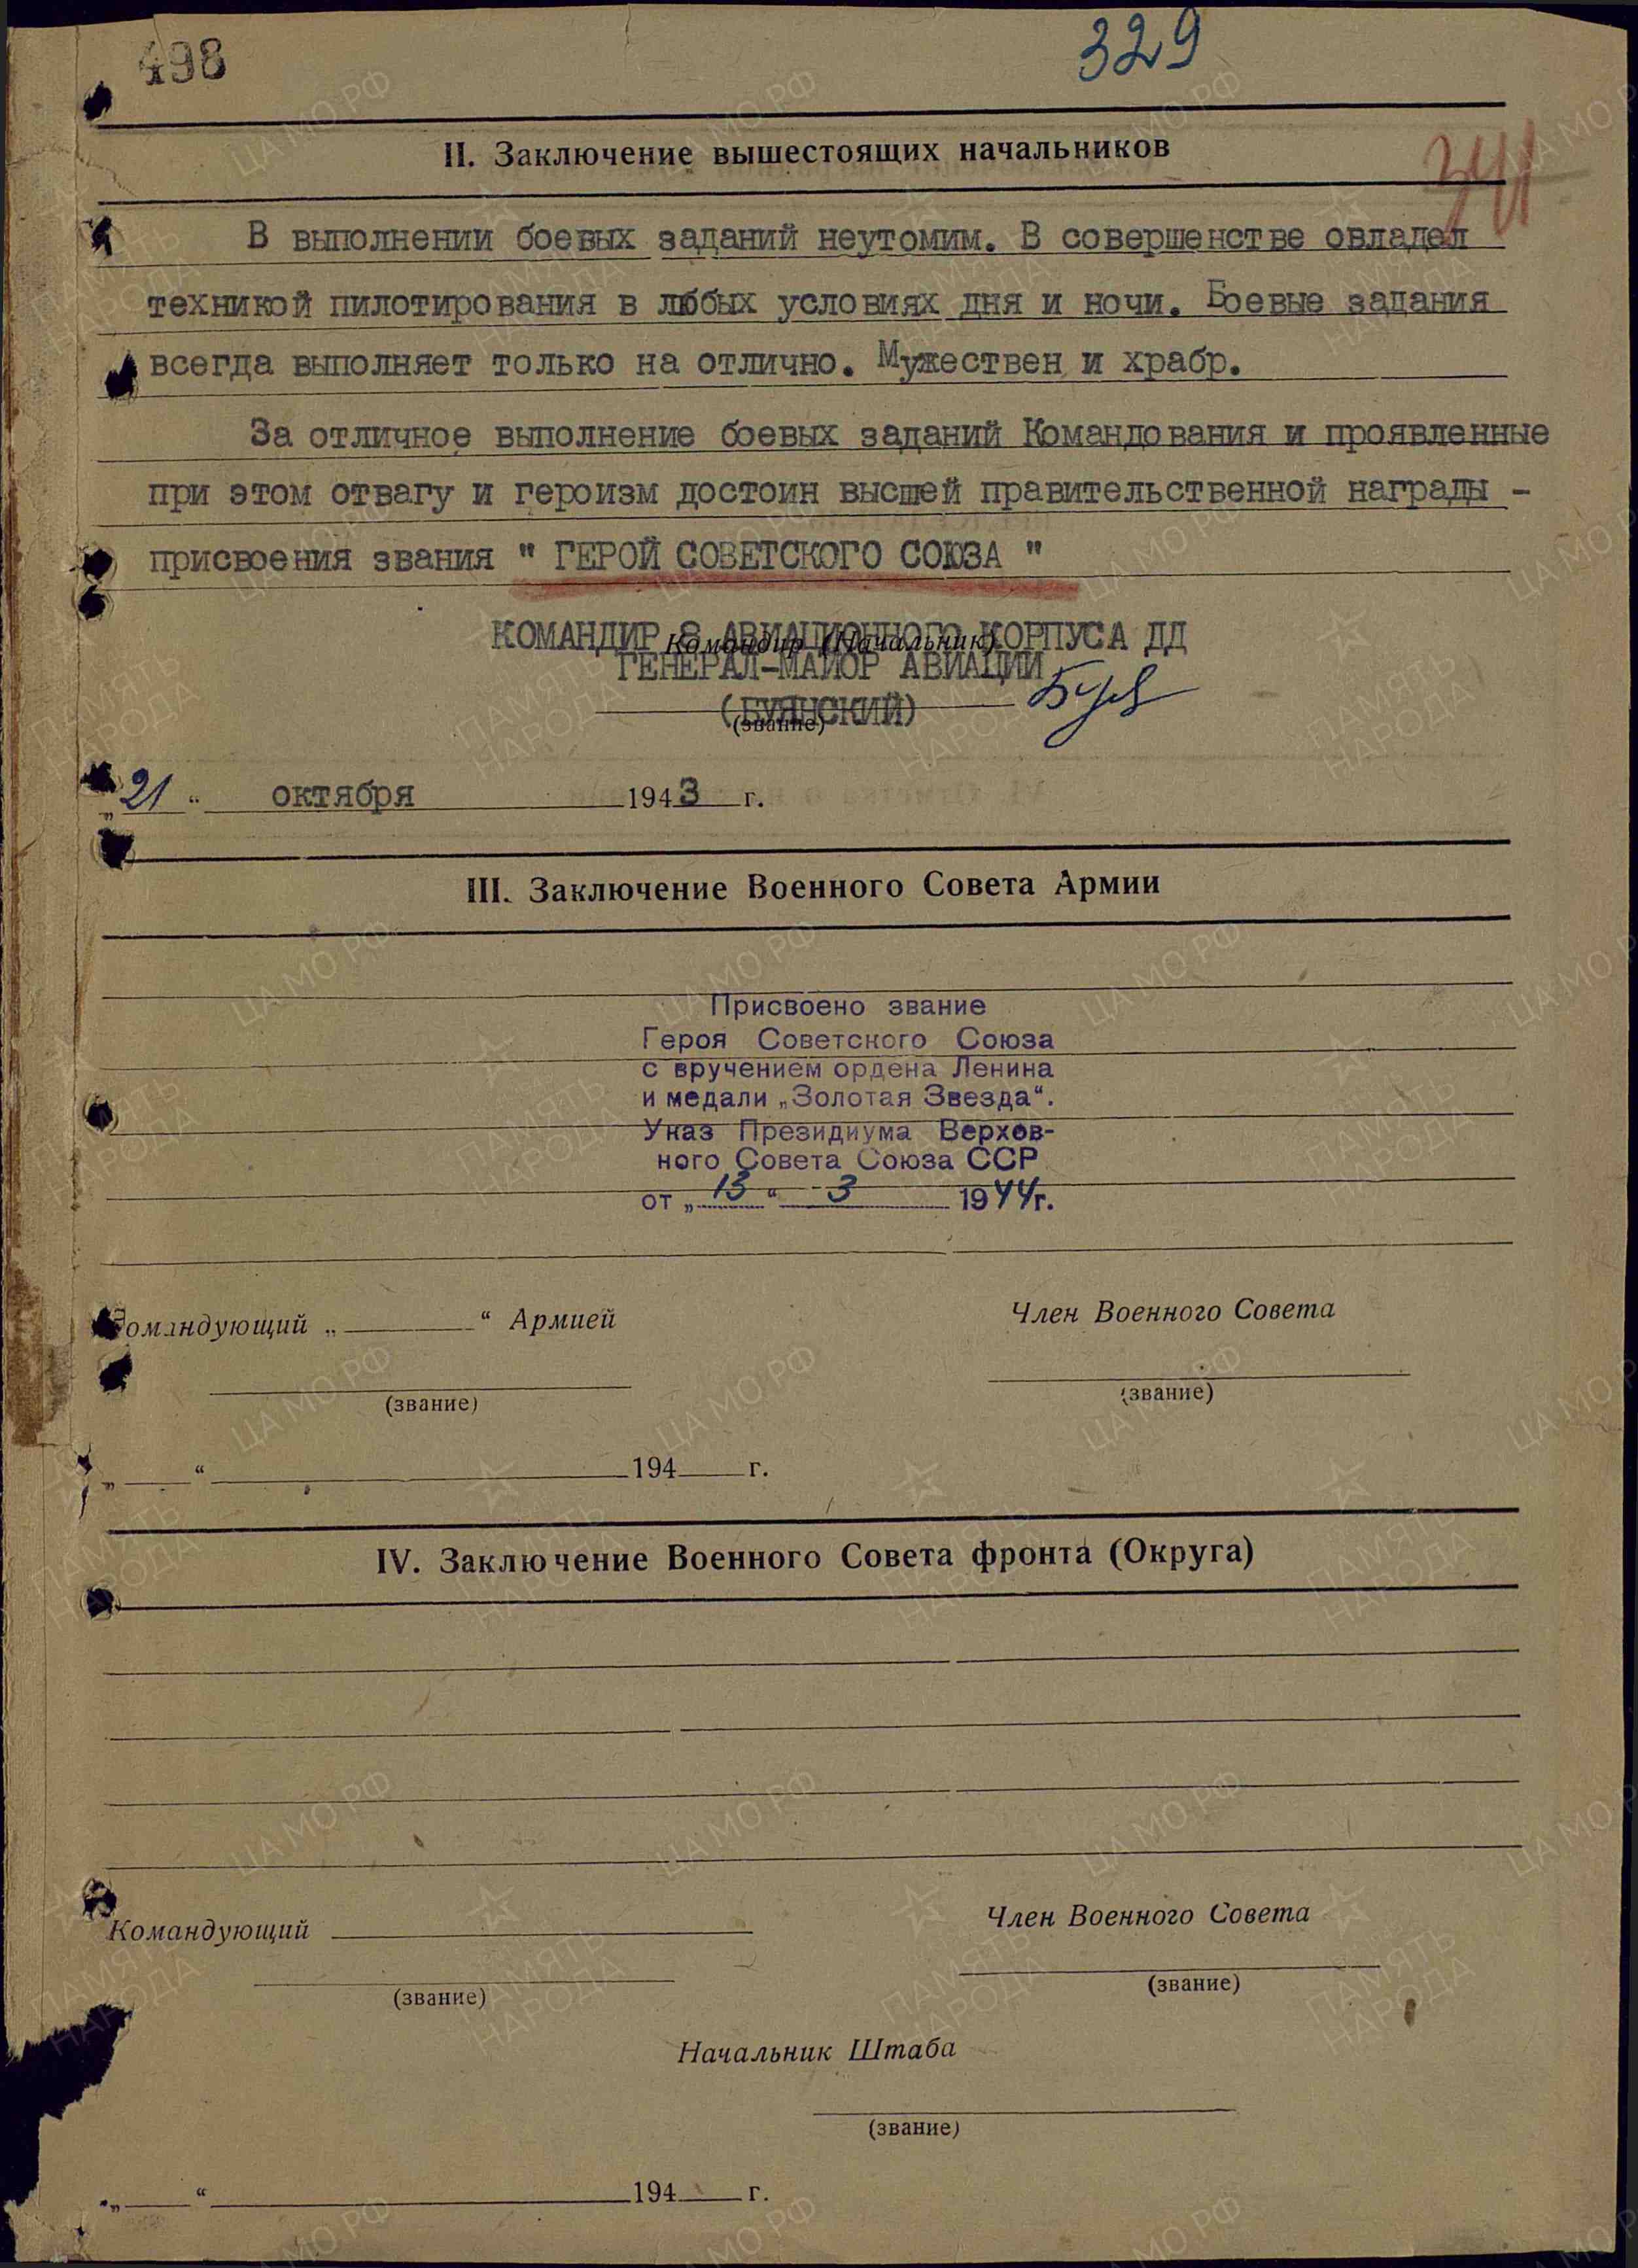 498
329
341
II. Заключение вышестоящих начальников
В выполнении боевых заданий неутомим. В совершенстве овладел
техникой пилотирования в любых условиях дня и ночи. Боевые задания
всегда выполняет только на отлично. Мужествен и храбр.
За отличное выполнение боевых заданий Командования и проявленные
при этом отвагу и героизм достоин высшей правительственной награды -
присвоения звания " ГЕРОЙ СОВЕТСКОГО СОЮЗА "
КОМАНДИР 8 АВИАЦИОННОГО КОРПУСА ДД
Командир (Начальник)
ГЕНЕРАЛ-МАЙОР АВИАЦИИ
(БУЯНСКИЙ)
(звание)
„21“ октября 1943 г.
III. Заключение Военного Совета Армии
Присвоено звание
Героя Советского Союза
с вручением ордена Ленина
и медали „Золотая Звезда“.
Указ Президиума Верхов-
ного Совета Союза ССР
от „13“ 3 1944г.
Командующий „ “ Армией Член Военного Совета
(звание) (звание)
„ “ 194 г.
IV. Заключение Военного Совета фронта (Округа)
Командующий Член Военного Совета
(звание) (звание)
Начальник Штаба
(звание)
„ “ 194 г.
ЦА МО РФ
ПАМЯТЬ
НАРОДА